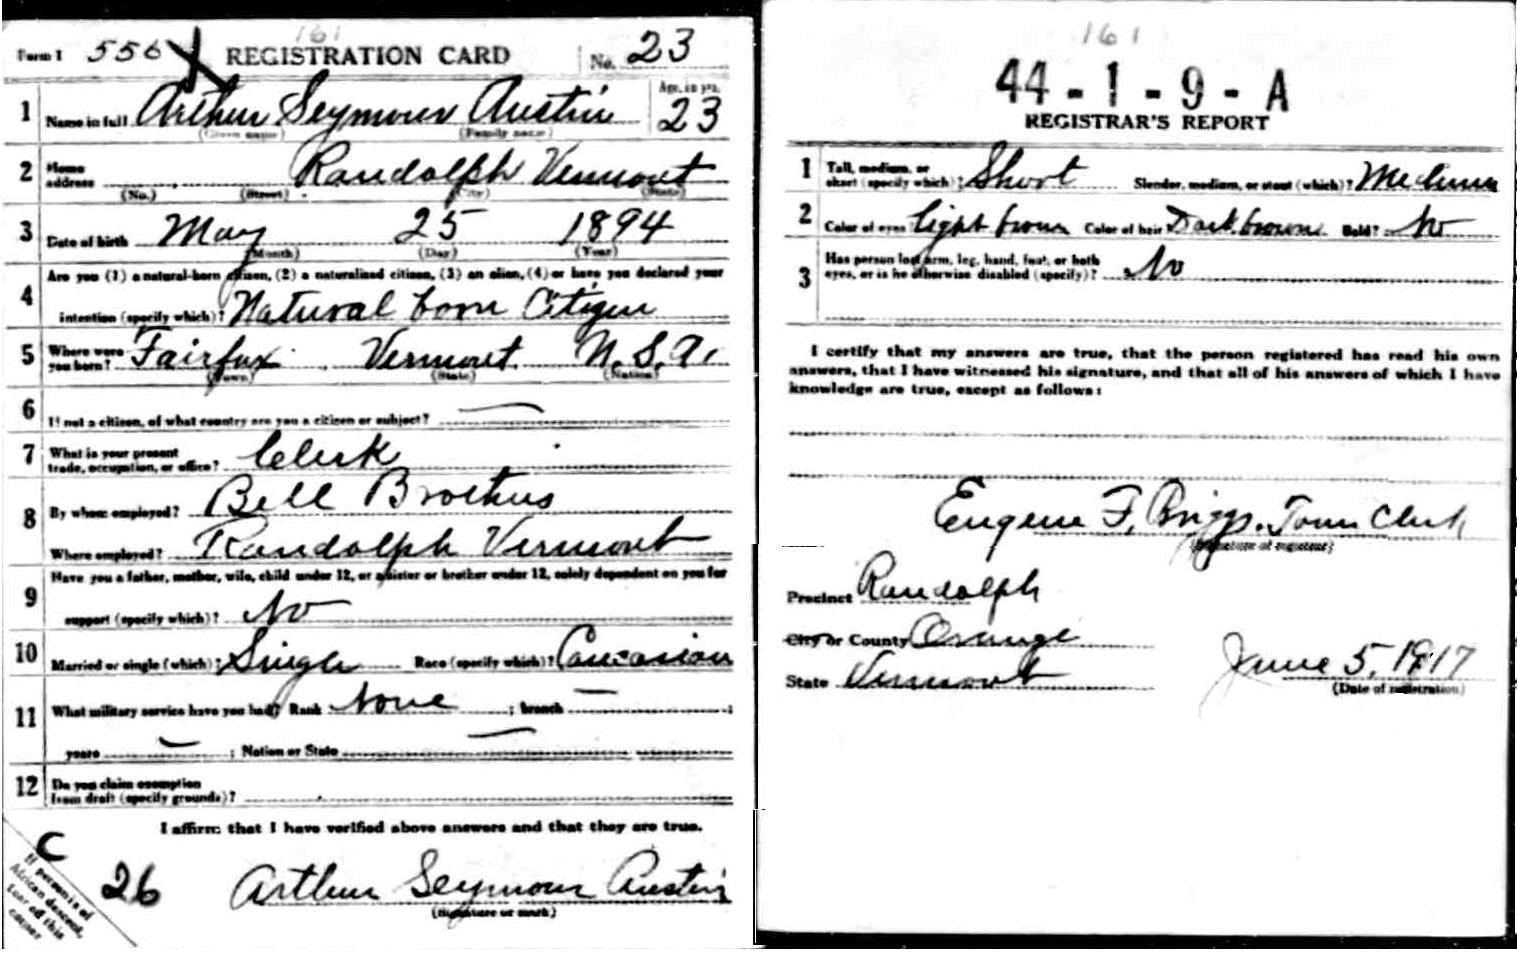 161
Form 1 556 X REGISTRATION CARD No. 23
1 Name in full Arthur Seymour Austin Age, in yrs. 23
(Given name) (Family name)
2 Home address Randolph Vermont
(No.) (Street) (City) (State)
3 Date of birth May 25 1894
(Month) (Day) (Year)
4 Are you (1) a natural-born citizen, (2) a naturalized citizen, (3) an alien, (4) or have you declared your
intention (specify which)? Natural born Citizen
5 Where were you born? Fairfax Vermont U.S.A.
(Town) (State) (Nation)
6 If not a citizen, of what country are you a citizen or subject? —
7 What is your present trade, occupation, or office? Clerk
8 By whom employed? Bell Brothers
Where employed? Randolph Vermont
9 Have you a father, mother, wife, child under 12, or a sister or brother under 12, solely dependent on you for
support (specify which)? No
10 Married or single (which)? Single Race (specify which)? Caucasian
11 What military service have you had? Rank None ; branch — ;
years — ; Nation or State —
12 Do you claim exemption from draft (specify grounds)?
I affirm that I have verified above answers and that they are true.
C
26 Arthur Seymour Austin
(Signature or mark)
If person is of
African descent,
tear off this
corner
161
44-1-9-A
REGISTRAR'S REPORT
1 Tall, medium, or short (specify which)? Short Slender, medium, or stout (which)? Medium
2 Color of eyes light brown Color of hair Dark brown Bald? No
3 Has person lost arm, leg, hand, foot, or both
eyes, or is he otherwise disabled (specify)? No
I certify that my answers are true, that the person registered has read his own
answers, that I have witnessed his signature, and that all of his answers of which I have
knowledge are true, except as follows:
Eugene F. Briggs. Town Clerk
(Signature of registrar)
Precinct Randolph
City or County Orange
State Vermont
June 5, 1917
(Date of registration)